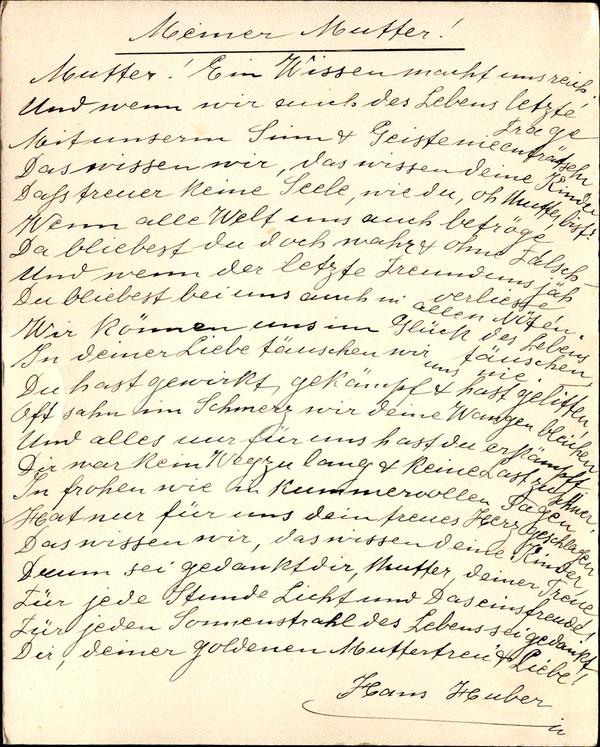 Meiner Mutter!
Mutter! Ein Wissen macht uns reich!
Und wenn wir auch des Lebens letzte Frage
Mit unserm Sinn & Geiste nie enträtseln
Das wissen wir, das wissen deine Kinder
Dass treuer keine Seele, wie du, oh Mutter, bist!
Wenn alle Welt uns auch betröge
Da bliebest du doch wahr & ohne Falsch
Und wenn der letzte Freund uns jäh verliesse
Du bliebest bei uns auch in allen Nöten.
Wir können uns im Glück des Lebens täuschen,
In deiner Liebe täuschen wir uns nie.
Du hast gewirkt, gekämpft & hast gelitten
Oft sahn im Schmerz wir deine Wangen bleichen
Und alles nur für uns hast du erkämpft
Dir war kein Weg zu lang & keine Last zu schwer,
In frohen wie in kummervollen Tagen
Hat nur für uns dein treues Herz geschlagen
Das wissen wir, das wissen deine Kinder!
Drum sei gedankt dir, Mutter, deiner Treue
Für jede Stunde Licht und Daseinsfreude!
Für jeden Sonnenstrahl des Lebens sei gedankt
Dir, deiner goldenen Muttertreu & Liebe!
Hans Huber